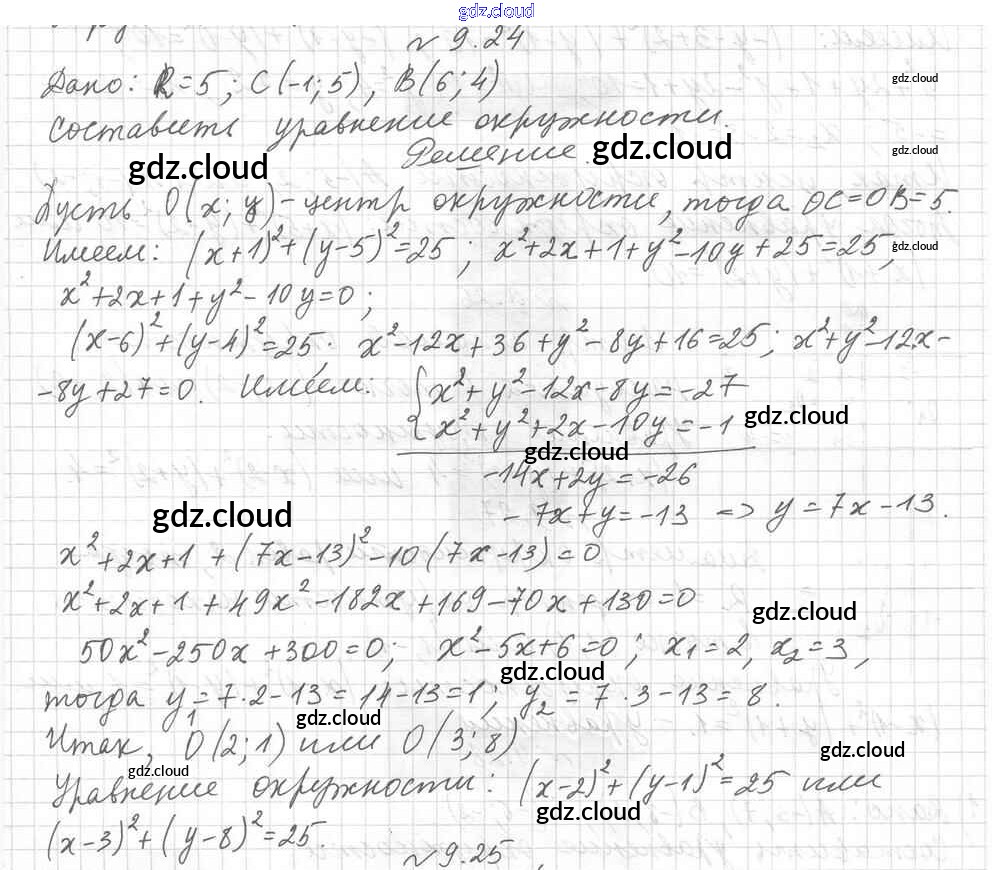 gdz.cloud
№ 9.24
gdz.cloud
Дано: R=5; C(-1;5), B(6;4)
Составить уравнение окружности.
gdz.cloud
Решение.
gdz.cloud gdz.cloud
Пусть O(x; y)-центр окружности, тогда OC=OB=5.
Имеем: (x+1)²+(y-5)²=25; x²+2x+1+y²-10y+25=25,
gdz.cloud
x²+2x+1+y²-10y=0;
(x-6)²+(y-4)²=25. x²-12x+36+y²-8y+16=25; x²+y²-12x-
-8y+27=0. Имеем: { x²+y²-12x-8y=-27
x²+y²+2x-10y=-1
gdz.cloud
gdz.cloud
-14x+2y=-26
gdz.cloud
-7x+y=-13 => y=7x-13.
x²+2x+1+(7x-13)²-10(7x-13)=0
x²+2x+1+49x²-182x+169-70x+130=0
gdz.cloud
50x²-250x+300=0; x²-5x+6=0; x₁=2, x₂=3,
gdz.cloud
тогда y₁=7·2-13=14-13=1; y₂=7·3-13=8.
gdz.cloud
Итак, O(2;1) или O(3;8)
gdz.cloud
gdz.cloud
Уравнение окружности: (x-2)²+(y-1)²=25 или
gdz.cloud
(x-3)²+(y-8)²=25.
№ 9.25